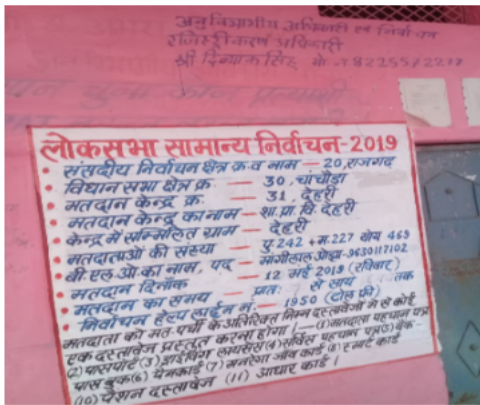 अनुविभागीय अधिकारी एवं निर्वाचन
रजिस्ट्रीकरण अधिकारी
श्री दिव्यांक सिंह मो.
लोकसभा सामान्य निर्वाचन-2019
• संसदीय निर्वाचन क्षेत्र क्र. व नाम — 20, राजगढ
• विधान सभा क्षेत्र क्र. — 30, चांचौडा
• मतदान केन्द्र क्र. — 31, देहरी
• मतदान केन्द्र का नाम — शा. प्रा. वि. देहरी
• केन्द्र में सम्मिलित ग्राम — देहरी
• मतदाताओं की संख्या — पु. 242 + म. 227 योग 469
• बी.एल.ओ. का नाम, पद — मांगीलाल ओझा-9630117102
• मतदान दिनांक — 12 मई 2019 (रविवार)
• मतदान का समय — प्रातः से सायं तक
• निर्वाचन हेल्प लाईन नं. — 1950 (टोल फ्री)
मतदाता को मत पर्ची के अतिरिक्त निम्न दस्तावेजों में से कोई
एक दस्तावेज प्रस्तुत करना होगा।—(1) मतदाता पहचान पत्र
(2) पासपोर्ट (3) ड्राईविंग लायसेंस (4) सर्विस पहचान पत्र (5) बैंक-
पासबुक (6) पेनकार्ड (7) मनरेगा जॉब कार्ड (8) स्मार्ट कार्ड
(10) पेंशन दस्तावेज (11) आधार कार्ड।